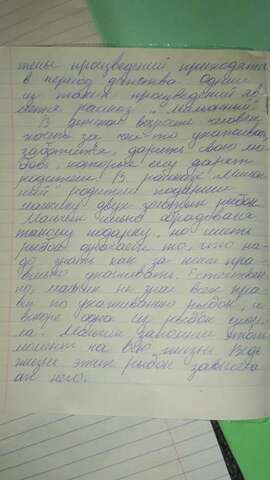 темы произведений приходятся
в период детства. Одним
из таких произведений яв
ляется рассказ "маленький
В детском возрасте человеку
хочется за кем-то ухаживать,
заботиться, дарить свою лю
бовь, которую ему дарят
родители. В рассказе
ный родители подарили
мальчику двух золотых рыбок.
Мальчик обрадовался
такому подарку, но иметь
рыбок означает то, что на
до знать как за ними пра
вильно ухаживать. Естествен
но, мальчик не знал всех пра
вил по ухаживанию рыбок, и
вскоре одна из рыбок
ла. Мальчик запомнил этот
момент на всю жизнь. Ведь
жизнь этих рыбок зависела
от него.